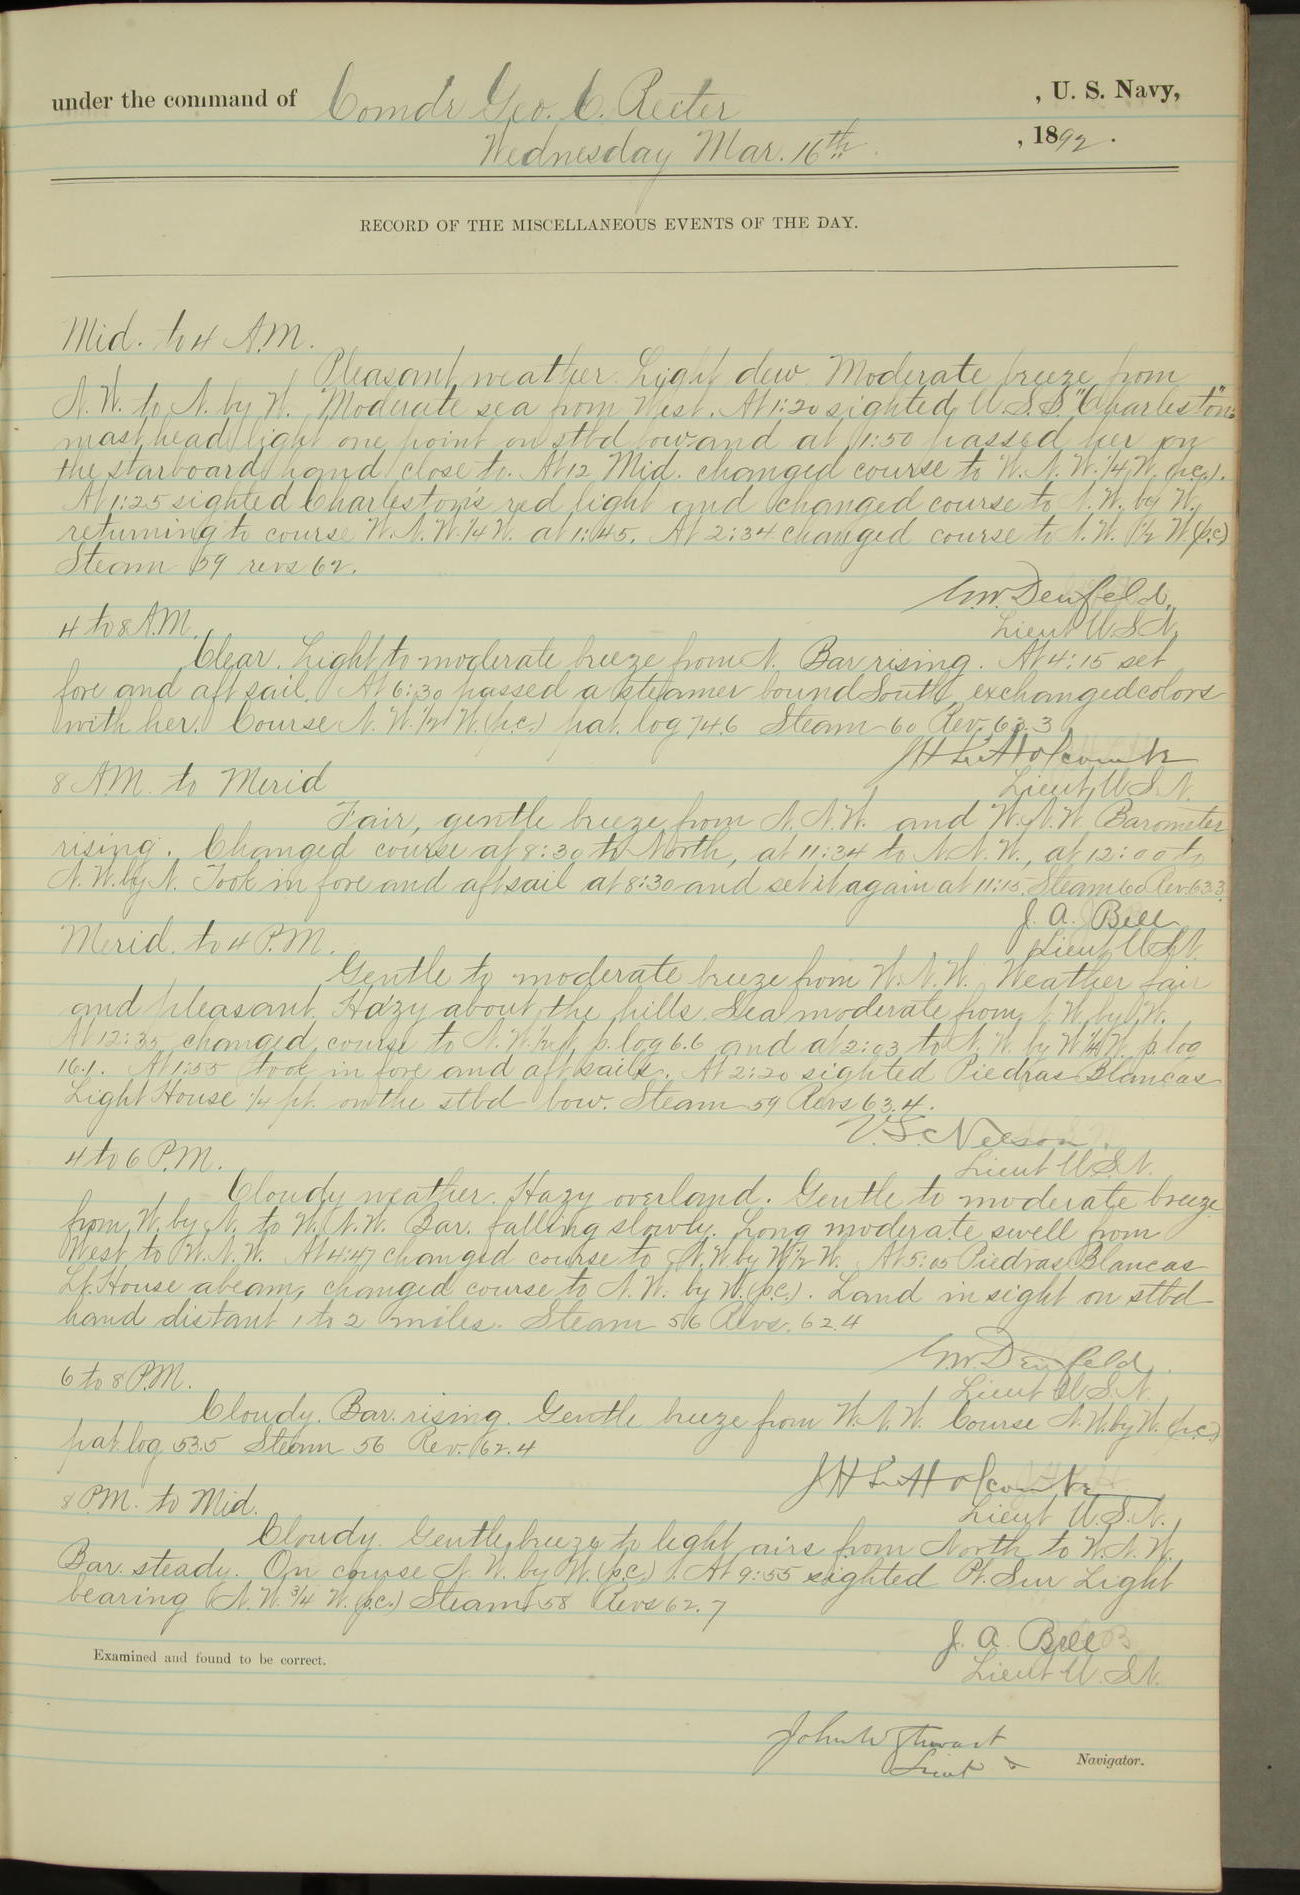 under the command of Comdr Geo. C. Reiter , U. S. Navy,
Wednesday Mar. 16th , 1892.
RECORD OF THE MISCELLANEOUS EVENTS OF THE DAY.
Mid. to 4 A.M.
Pleasant weather. Light dew. Moderate breeze from
N.W. to N. by W. Moderate sea from West. At 1:20 sighted U.S.S. "Charleston's"
masthead light one point on stbd bow and at 1:50 passed her on
the starboard hand close to. At 12 Mid. changed course to W.N.W. 1/4 W. (p.c.).
At 1:25 sighted Charleston's red light and changed course to N.W. by W.
returning to course W.N.W. 1/4 W. at 1:45. At 2:34 changed course to N.W. 1/2 W. (p.c.)
Steam 59 revs 62.
G.W. Denfeld,
Lieut U.S.N.
4 to 8 A.M.
Clear. Light to moderate breeze from N. Bar rising. At 4:15 set
fore and aft sail. At 6:30 passed a steamer bound South, exchanged colors
with her. Course N.W. 1/2 W. (p.c.) pat. log 74.6 Steam 60 Rev. 63.3
J H L Holcombe
Lieut, U.S.N.
8 A.M. to Merid
Fair, gentle breeze from N.N.W. and W.N.W. Barometer
rising. Changed course at 8:30 to North, at 11:34 to N.N.W., at 12:00 to
N.W. by N. Took in fore and aft sail at 8:30 and set it again at 11:15. Steam 60 Rev. 63.3
J. A. Bell
Lieut U.S.N.
Merid. to 4 P.M.
Gentle to moderate breeze from W.N.W. Weather fair
and pleasant. Hazy about the hills. Sea moderate from N.W. by W.
At 12:35 changed course to N.W. 1/2 N. p. log 6.6 and at 2:03 to N.W. by W. 1/4 W. p. log
16.1. At 1:55 took in fore and aft sails. At 2:20 sighted Piedras Blancas
Light House 1/4 pt. on the stbd bow. Steam 59 Revs 63.4.
V.S. Nelson.
Lieut U.S.N.
4 to 6 P.M.
Cloudy weather. Hazy over land. Gentle to moderate breeze
from W. by N. to W.N.W. Bar. falling slowly. Long moderate swell from
West to W.N.W. At 4:47 changed course to N.W. by W. 1/2 W. At 5:05 Piedras Blancas
Lt. House abeam, changed course to N.W. by W. (p.c.). Land in sight on stbd
hand distant 1 to 2 miles. Steam 56 Revs. 62.4
G.W. Denfeld.
Lieut U.S.N.
6 to 8 P.M.
Cloudy. Bar. rising. Gentle breeze from W.N.W. Course N.W. by W. (p.c.)
pat. log 53.5 Steam 56 Rev. 62.4
J H L Holcombe
Lieut U.S.N.
8 P.M. to Mid.
Cloudy. Gentle breeze to light airs from North to W.N.W.
Bar. steady. On course N.W. by W. (p.c.). At 9:55 sighted Pt. Sur Light
bearing N.W. 3/4 W. (p.c.) Steam 58 Revs 62.7
J. A. Bell
Lieut U.S.N.
Examined and found to be correct.
John W Stewart
Lieut Navigator.